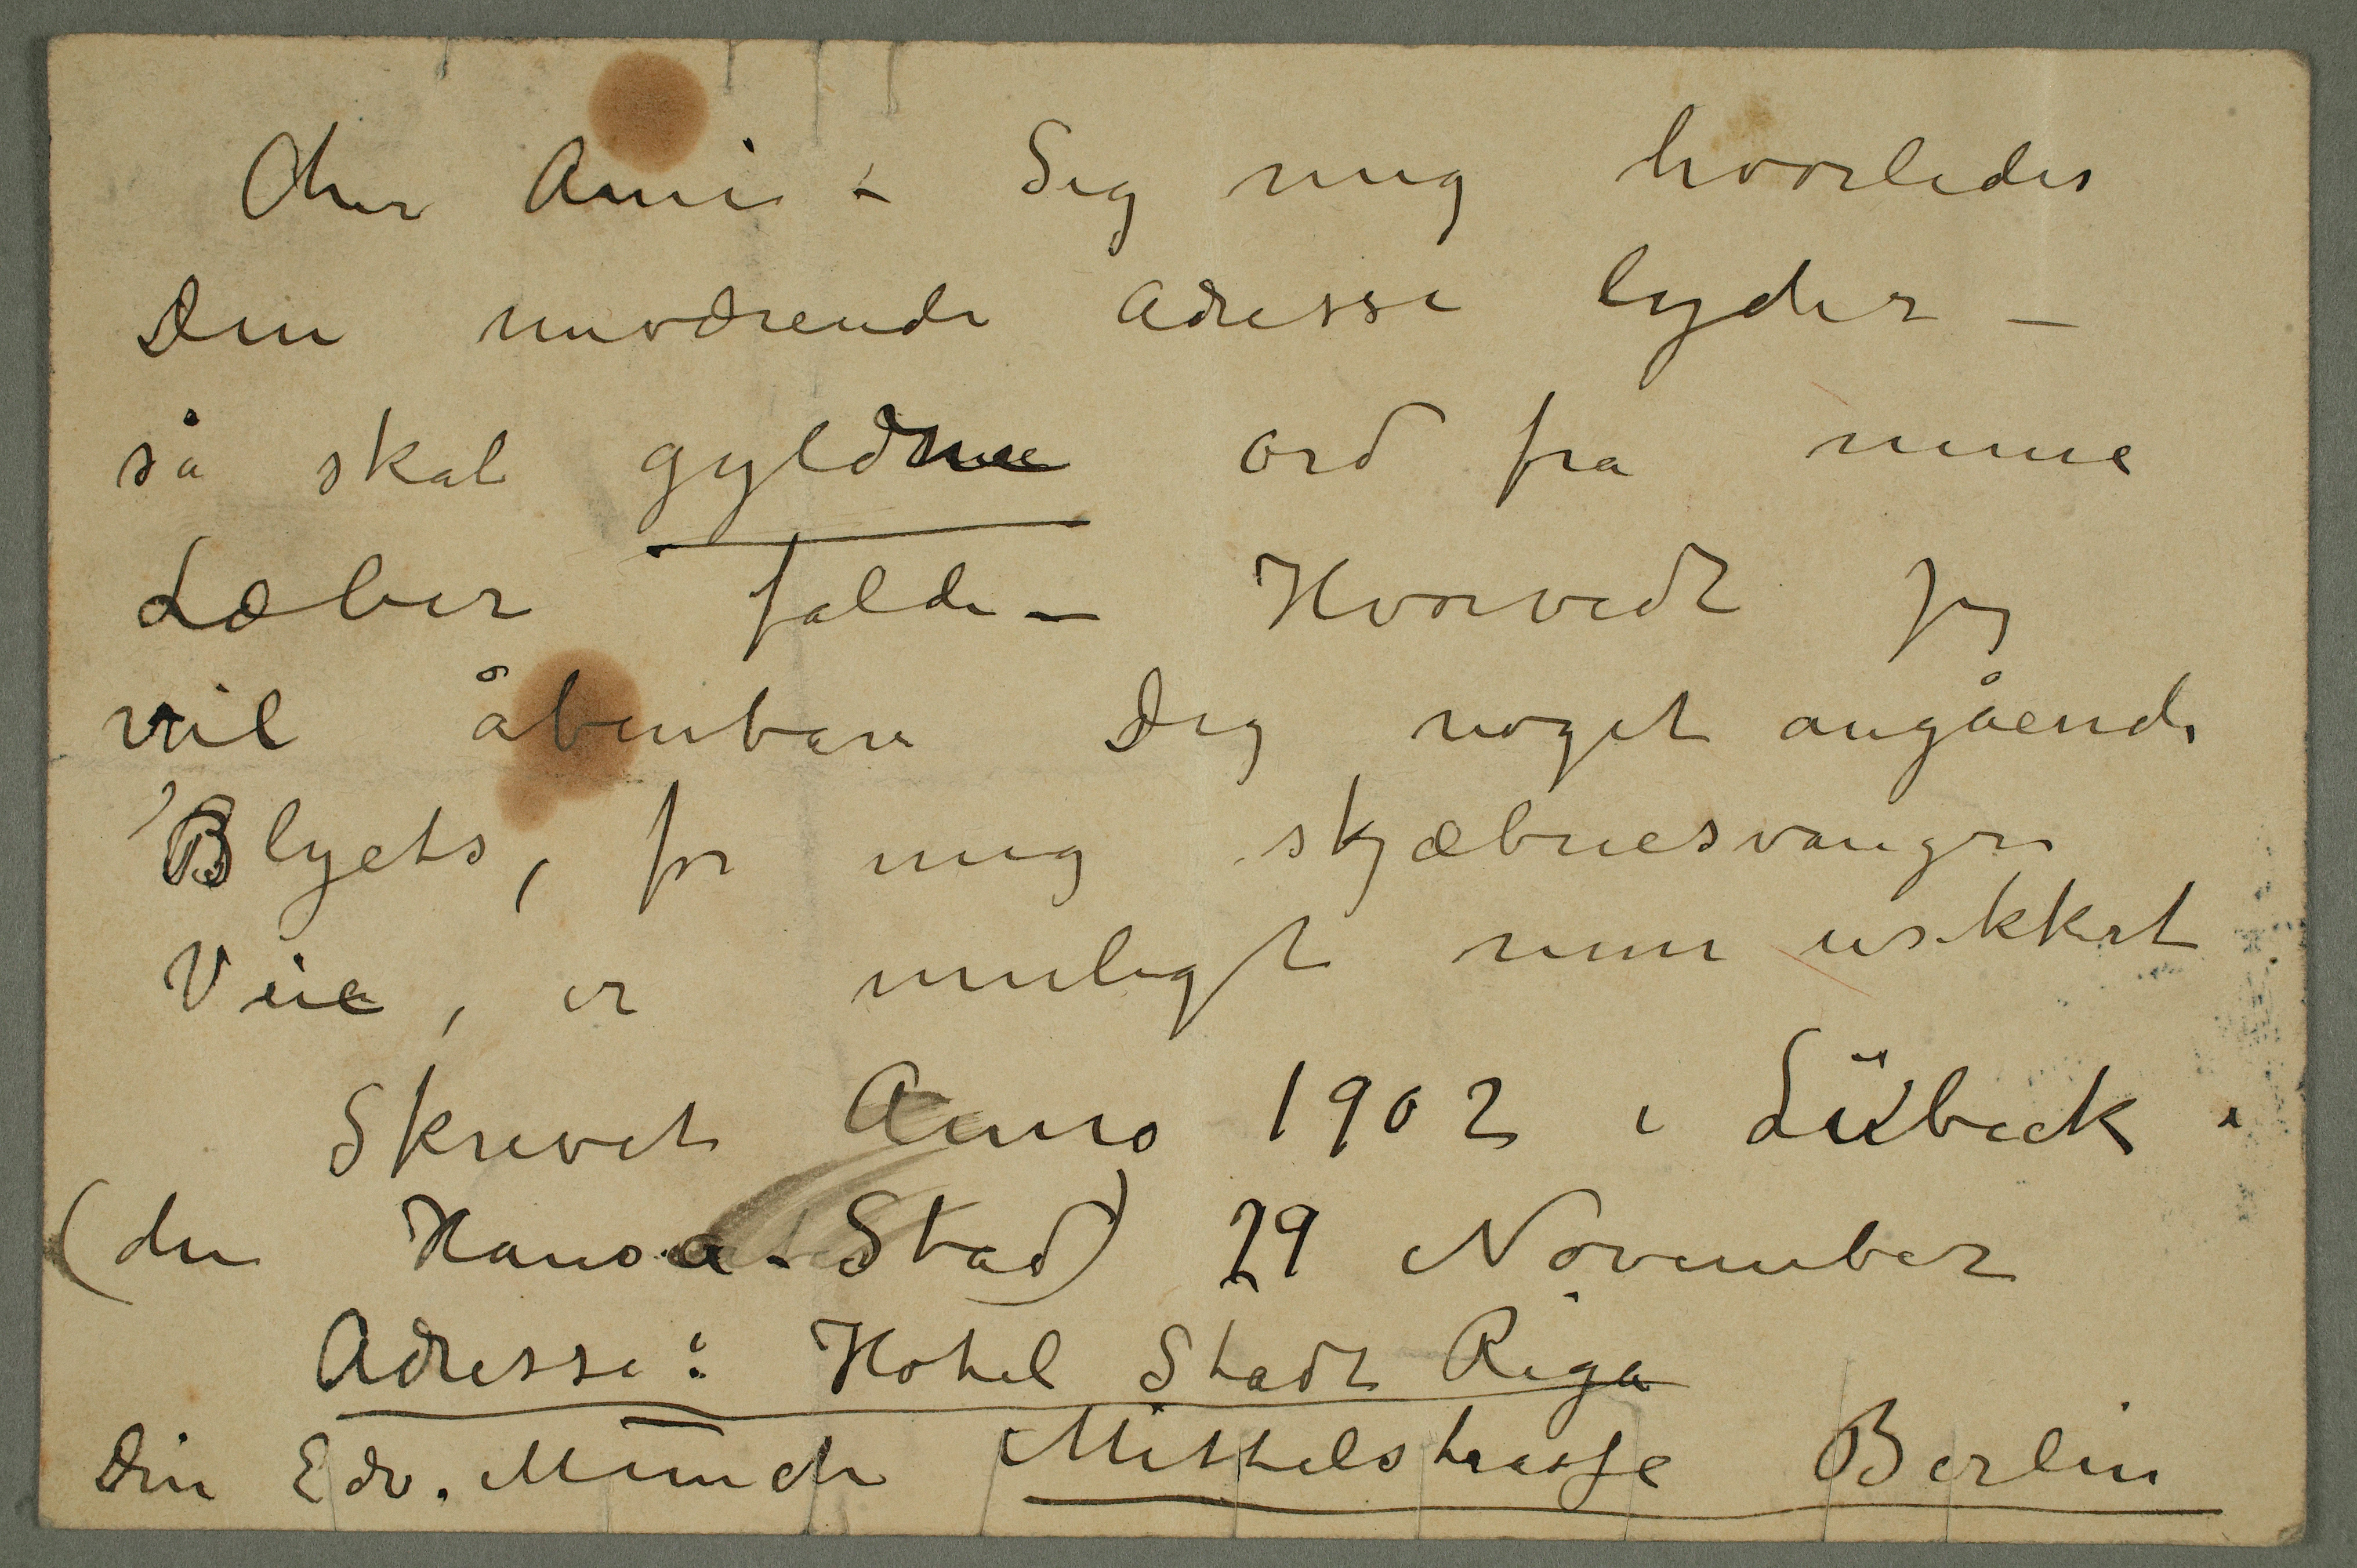 Cher Ami – Sig mig hvorledes
Din nuværende adresse lyder –
så skal gyldne ord fra mine
Læber falde – Hvorvidt jeg
vil åbenbare Dig noget angående
Blyets, for mig skjæbnesvangre
Vei, er muligt men usikkert
Skrevet Anno 1902 i Lübeck i
(den Hansa-Stad) 29 November
Adresse: Hotel Stadt Riga
Din Edv. Munch Mittelstrasse Berlin